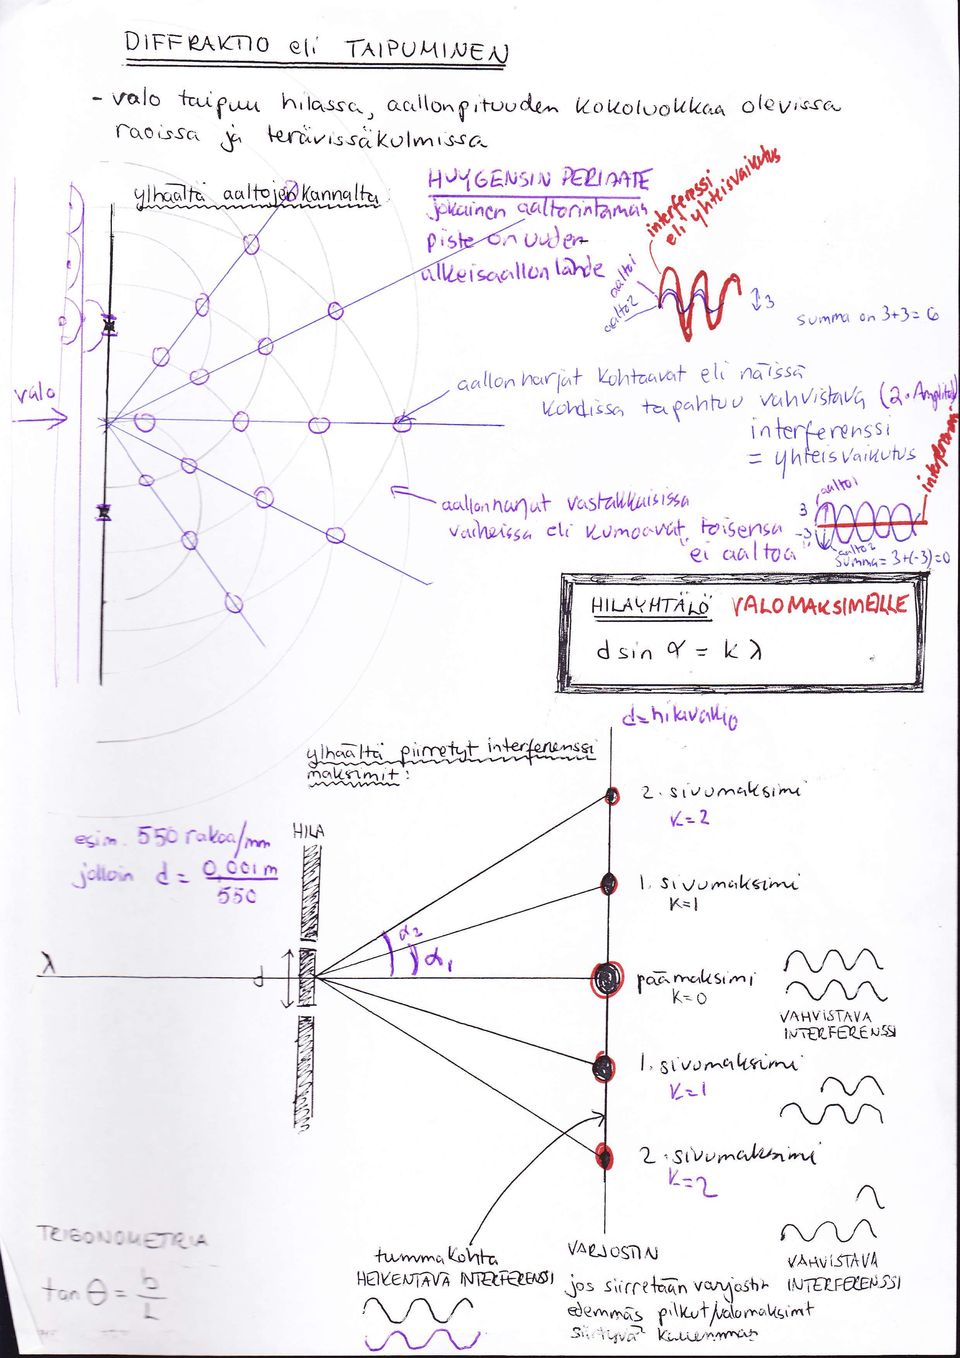 DIFFRAKTIO eli TAIPUMINEN
- valo taipuu hilassa, aallonpituuden kokoluokkaa olevissa
raoissa ja terävissä kulmissa
ylhäältä aaltojen kannalta
HUYGENSIN PERIAATE
jokainen aaltorintaman
piste on uuden
alkeisaallon lähde
interferenssi
eli yhteisvaikutus
aalto1
aalto2
3
summa on 3+3=6
valo
aallonharjat kohtaavat eli näissä
kohdissa tapahtuu vahvistava (2·Amplitudi)
interferenssi
= yhteisvaikutus
interferenssi
aallonharjat vastakkaisissa
vaiheissa eli kumoavat toisensa
"ei aaltoa"
aalto1
3
-3
aalto2
summa = 3+(-3)=0
HILAYHTÄLÖ VALOMAKSIMEILLE
d sin α = k λ
d=hilavakio
ylhäältä piirretyt interferenssi
maksimit:
esim. 550 rakoa/mm
jolloin d = 0,001 m
550
HILA
2. sivumaksimi
K=2
1. sivumaksimi
K=1
α2
α1
λ
d
päämaksimi
K=0
VAHVISTAVA
INTERFERENSSI
1. sivumaksimi
K=1
2. sivumaksimi
K=2
TRIGONOMETRIA
tan θ = b
L
tumma kohta
HEIKENTÄVÄ INTERFERENSSI
VARJOSTIN
jos siirretään varjostin
edemmäs pilkut/valomaksimt
siirtyvä kauemmas
VAHVISTAVA
INTERFERENSSI